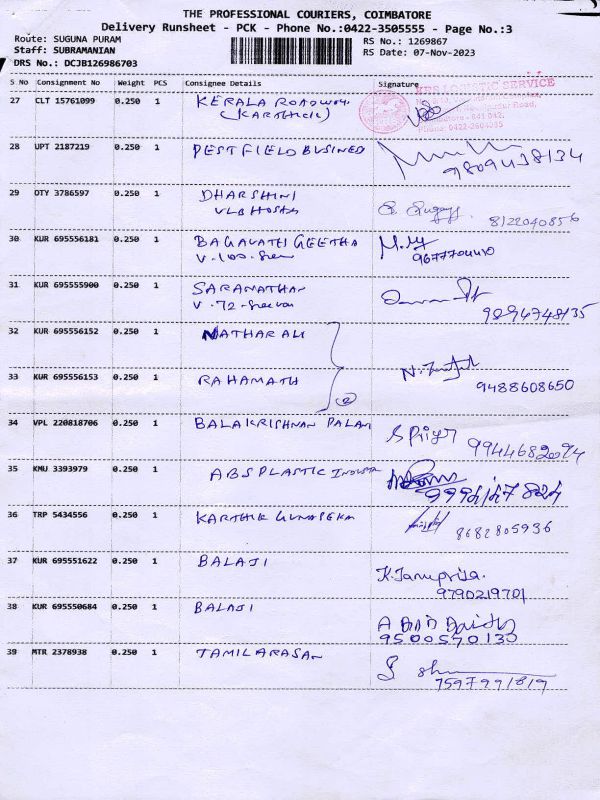 THE PROFESSIONAL COURIERS, COIMBATORE
Delivery Runsheet - PCK - Phone No.:0422-3505555 - Page No.:3
Route: SUGUNA PURAM
RS No.: 1269867
Staff: SUBRAMANIAN
RS Date: 07-Nov-2023
DRS No.: DCJB126986703
S No Consignment No Weight PCS Consignee Details Signature
27 CLT 15761099 0.250 1 KERALA ROADWAY
(KARTHICK)
LOGISTIC SERVICE
Road,
Coimbatore - 641 042.
Phone: 0422-2604035
28 UPT 2187219 0.250 1 PESTFIELD BUSINED
9809438134
29 OTY 3786597 0.250 1 DHARSHINI
VLB HOSTEL
8122040856
30 KUR 695556181 0.250 1 BAGAVATH GEETHA
V.100.
9677704410
31 KUR 695555900 0.250 1 SARANATHAN
V.72.
9894748135
32 KUR 695556152 0.250 1 NATHAR ALI
33 KUR 695556153 0.250 1 RAHAMATH
9488608650
34 VPL 220818706 0.250 1 BALAKRISHNAN PALANI
S Priya
9944682094
35 KMU 3393979 0.250 1 ABS PLASTIC INDUSTR
36 TRP 5434556 0.250 1 KARTHIK GUNASEKA
8682805936
37 KUR 695551622 0.250 1 BALAJI
K.Janupriya.
9790219701
38 KUR 695550684 0.250 1 BALAJI
9500570130
39 MTR 2378938 0.250 1 TAMILARASAN
7597991819